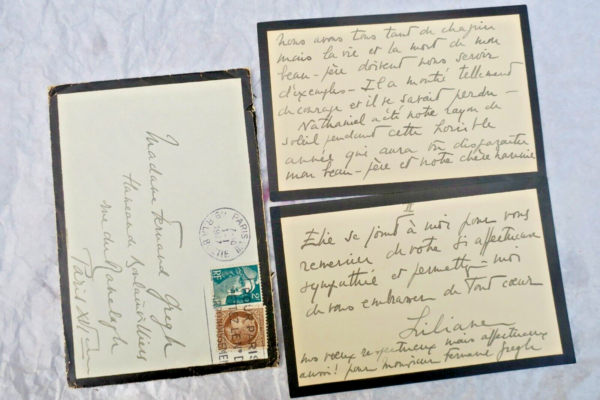 Madame Fernand Gregh
Hameau de Boulainvilliers
rue du Ranelagh
Paris XVI
PARIS
RF
2
nous avons tous tant de chagrin
mais la vie et la mort de mon
beau-père doivent nous servir
d'exemples - Il a montré tellement
de courage et il se savait perdu -
Nathaniel a été notre rayon de
soleil pendant cette horrible
année qui aura vu disparaître
mon beau-père et notre chère
II
Elie se joint à moi pour vous
remercier de votre si affectueuse
sympathie et permettez-moi
de vous embrasser de tout cœur
Liliane
nos vœux respectueux mais affectueux
aussi! pour monsieur Fernand Gregh